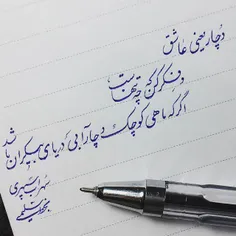 دچار یعنی عاشق
و فکر کن که چه تنهاست
اگر که ماهی کوچک دچار آبی دریای بیکران باشد
سهراب سپهری